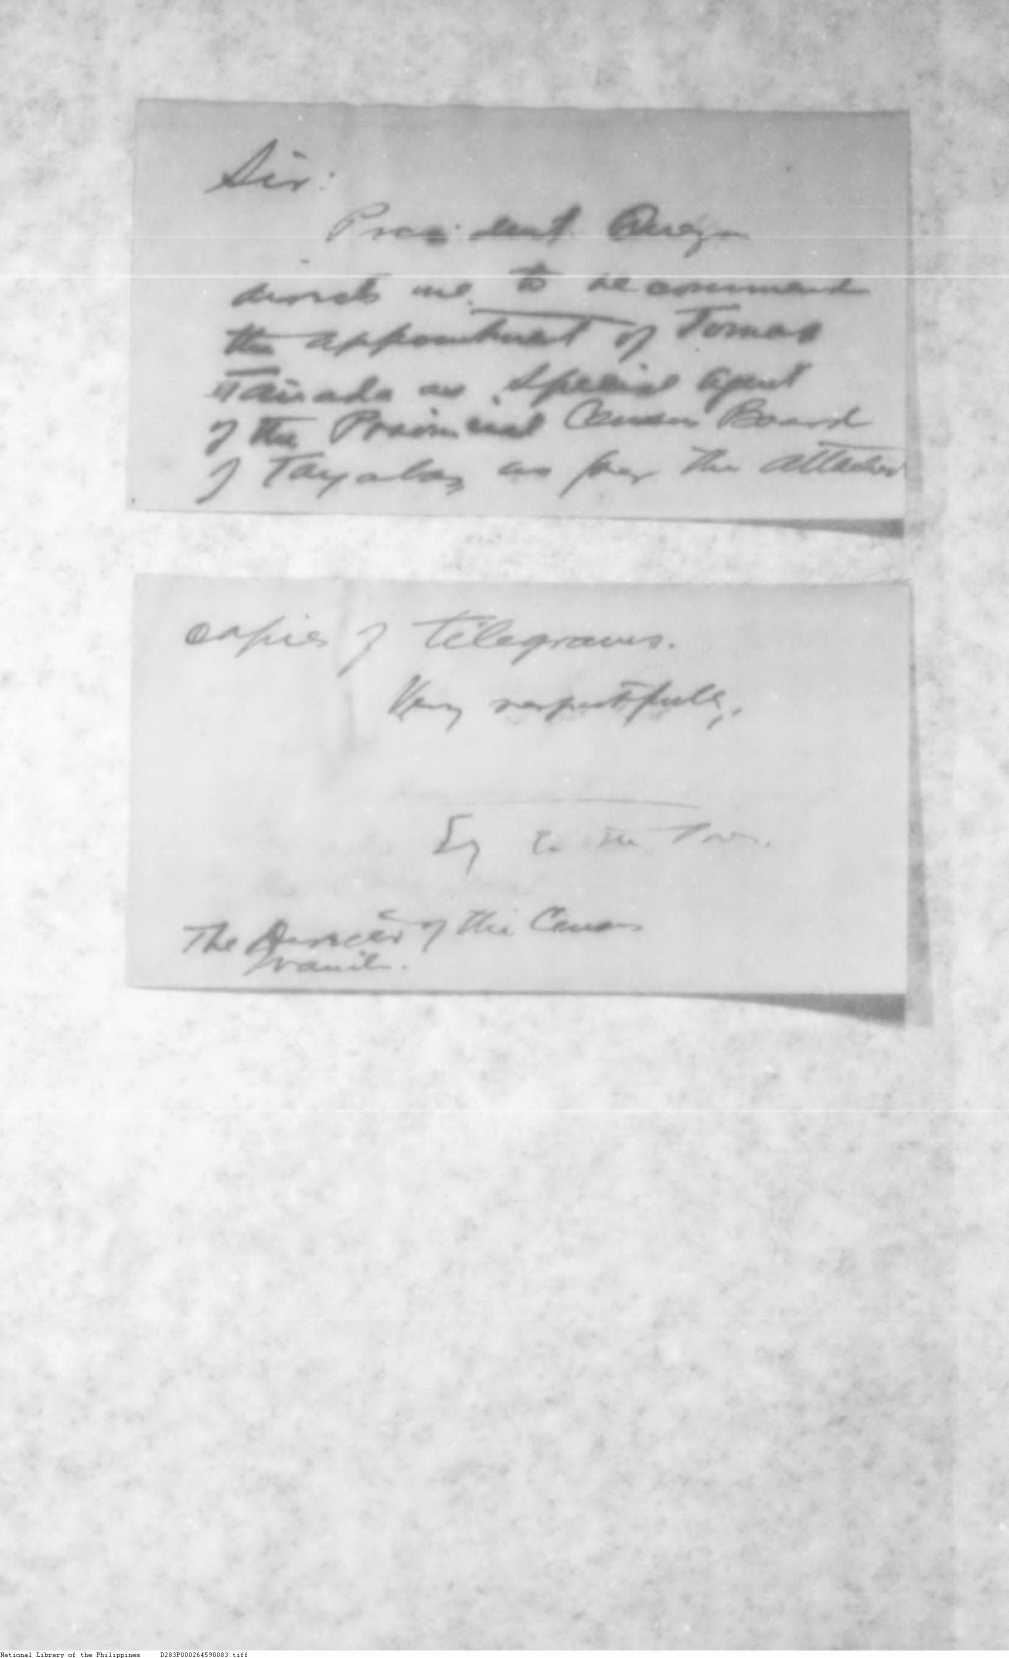 Sir:
President Quezon
directs me to recommend
the appointment of Tomas
Tañada as Special Agent
of the Provincial Census Board
of Tayabas, as per the attached
copies of telegrams.
Very respectfully,
to the Pres.
The Director of the Census
Manila.
National Library of the Philippines D283P000264590083.tiff